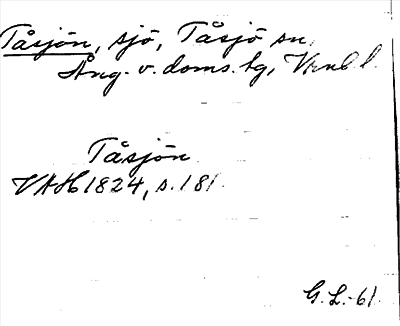 Tåsjön, sjö, Tåsjö sn,
Ång. v. doms. tg, Vrnl. l.
Tåsjön
VAH 1824, s. 181.
G. L. -61.